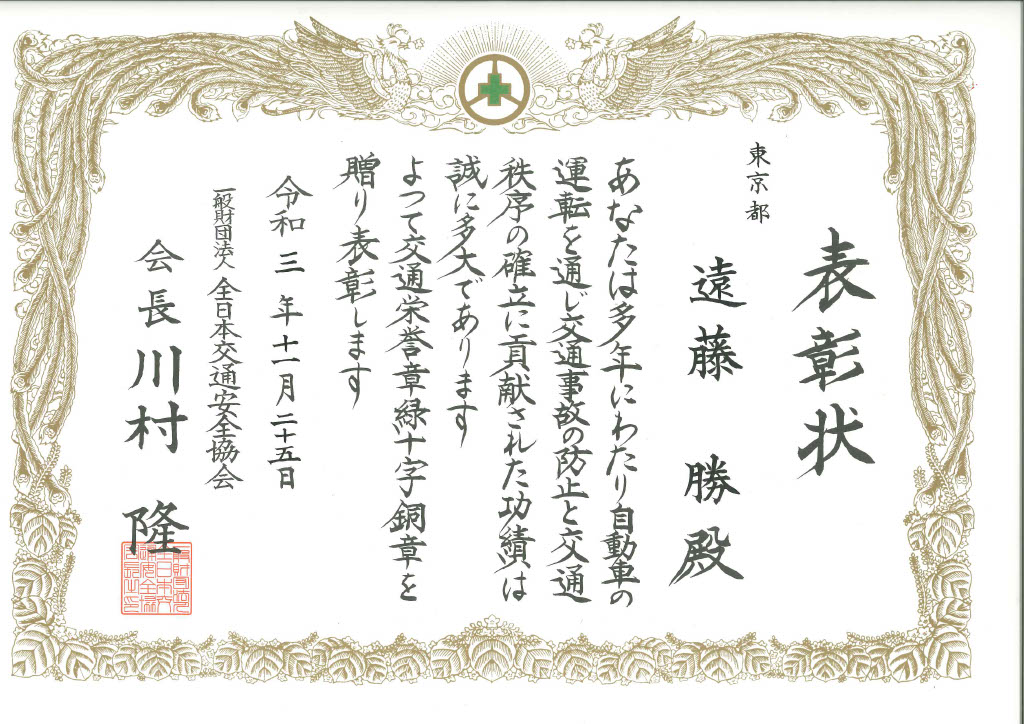 表彰状
東京都
遠藤 勝殿
あなたは多年にわたり自動車の
運転を通じ交通事故の防止と交通
秩序の確立に貢献された功績は
誠に多大であります
よって交通栄誉章緑十字銅章を
贈り表彰します
令和三年十一月二十五日
一般財団法人 全日本交通安全協会
会長 川村 隆